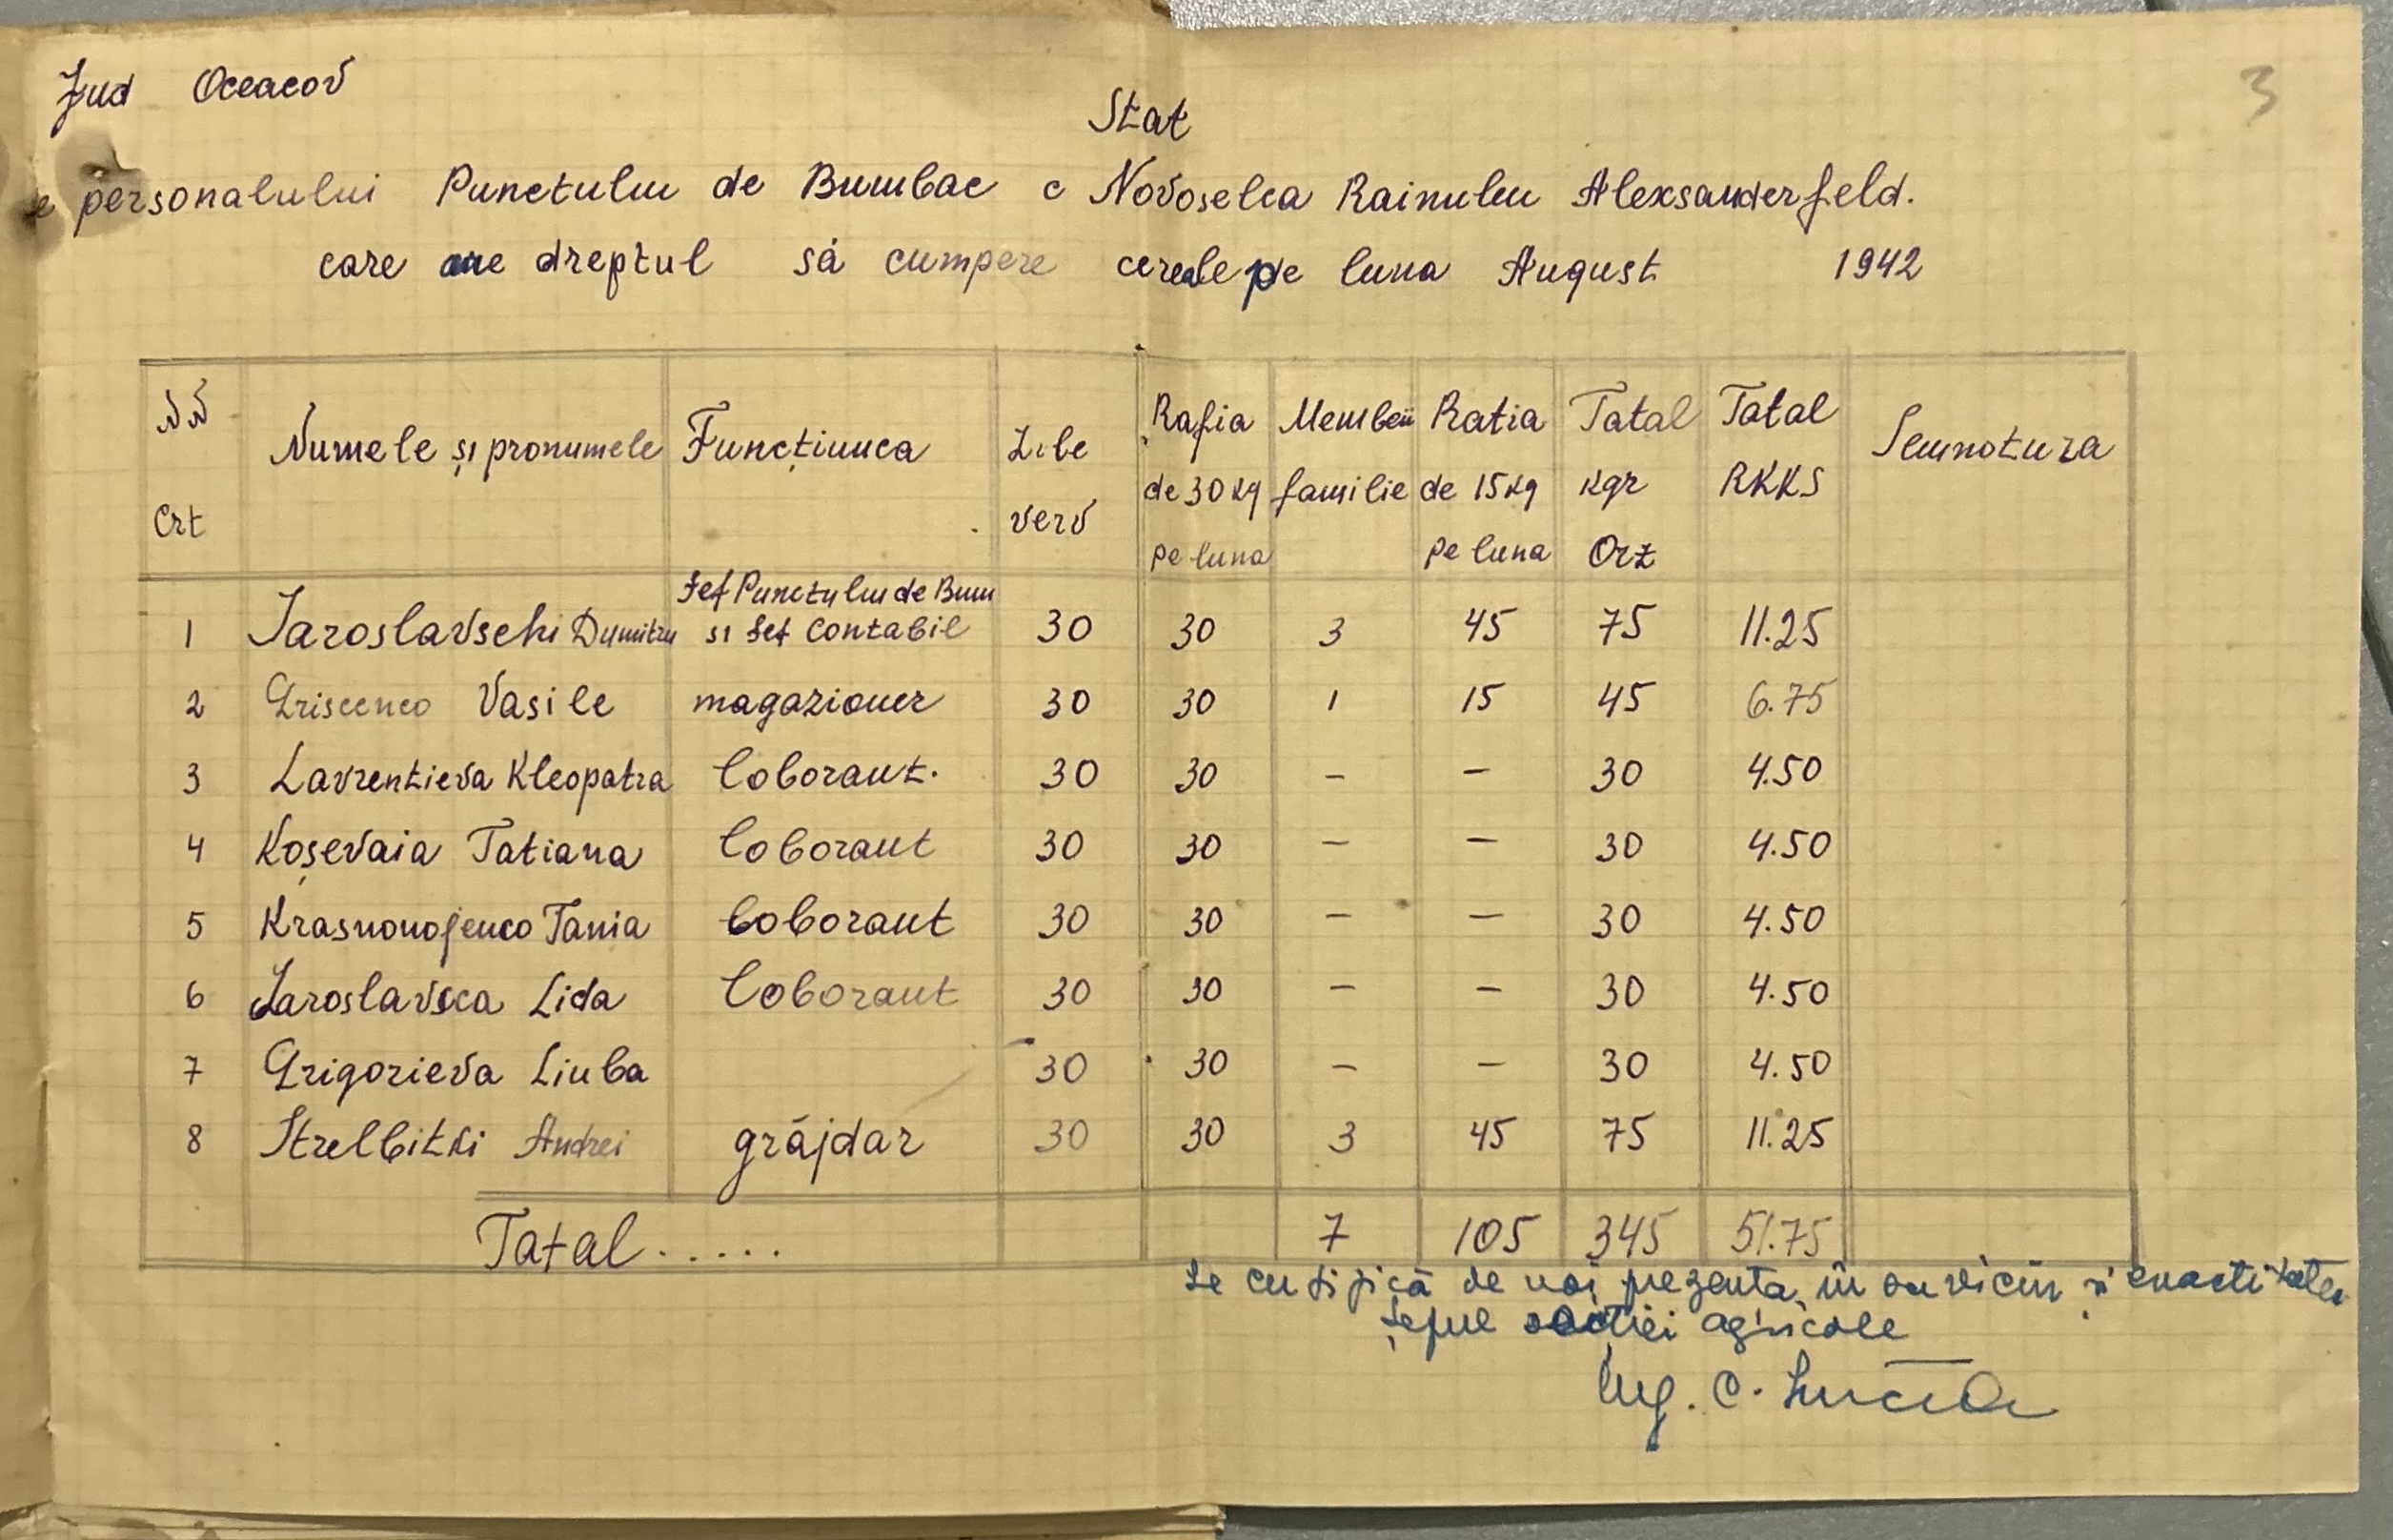 3
Jud Oceacov
Stat
e personalului Punctului de Bumbac c Novoselca Rainului Alexsanderfeld.
care are dreptul să cumpere cereale pe luna August 1942
NN Crt | Numele și pronumele | Funcțiunea | Zile verv | Rația de 30 kg pe luna | Membrii familie | Ratia de 15 kg pe luna | Tatal kgr Orz | Tatal RKKS | Semnotura
1 Iaroslavschi Dumitru Șef Punctului de Bum si Șef Contabil 30 30 3 45 75 11.25
2 Griscenco Vasile magazioner 30 30 1 15 45 6.75
3 Lavrentieva Kleopatra loborant. 30 30 – – 30 4.50
4 Koșevaia Tatiana loborant 30 30 – – 30 4.50
5 Krasnonojenco Tania loborant 30 30 – – 30 4.50
6 Iaroslavsca Lida loborant 30 30 – – 30 4.50
7 Grigorieva Liuba 30 30 – – 30 4.50
8 Strelbitki Andrei grăjdar 30 30 3 45 75 11.25
Tatal..... 7 105 345 51.75
Se certifică de noi prezenta în serviciu și exactitatea
Șeful secției agricole
Ing. C.